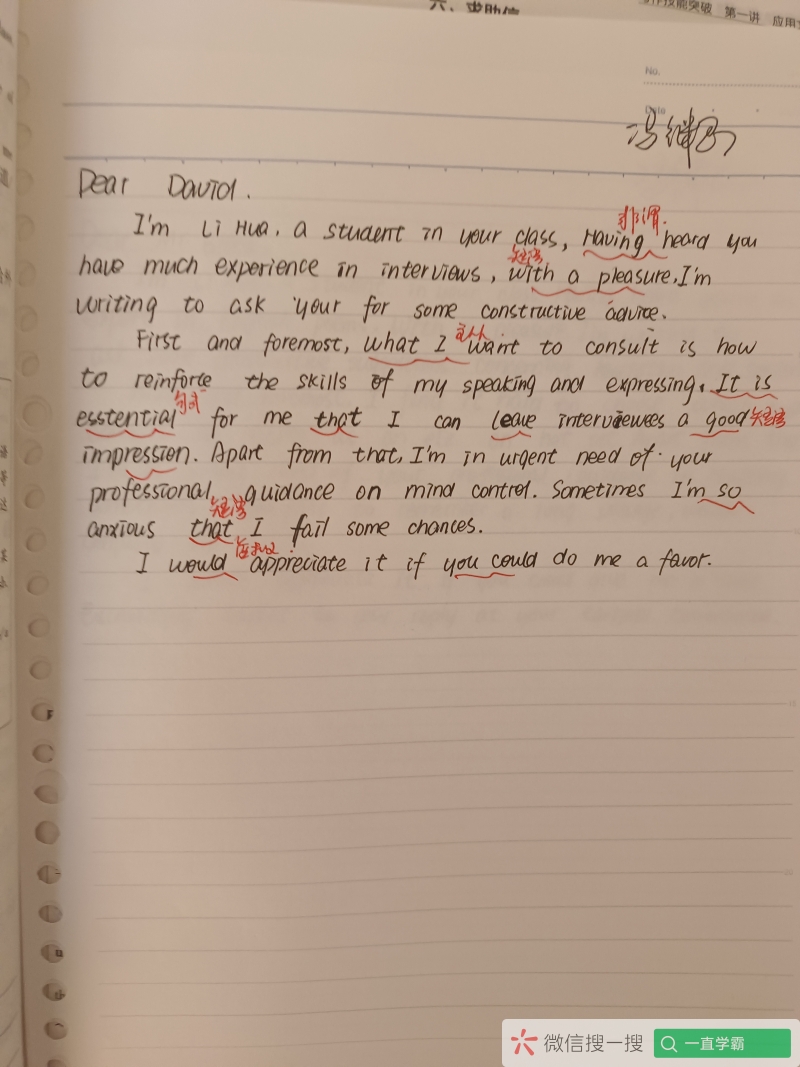 六、求助信
技能突破 第一讲 应用文
No.
Date
Dear David.
非谓.
I'm Li Hua, a student in your class, Having heard you
短语
have much experience in interviews, with a pleasure, I'm
writing to ask your for some constructive advice.
主从
First and foremost, what I want to consult is how
to reinforte the skills of my speaking and expressing. It is
句式
esstential for me that I can leave interviewees a good 短语
impression. Apart from that, I'm in urgent need of your
professional guidance on mind control. Sometimes I'm so
短语
anxious that I fail some chances.
虚拟
I would appreciate it if you could do me a favor.
微信搜一搜
一直学霸